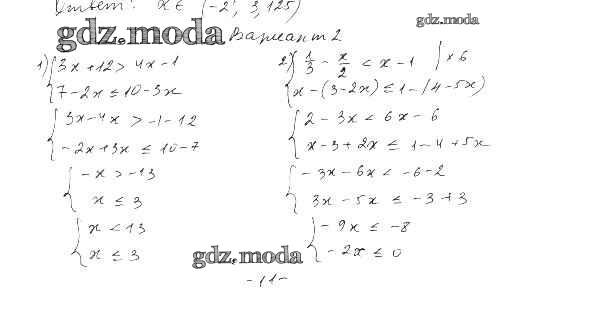 Ответ: x ∈ (-2; 3,125)
gdz.moda
gdz.moda Вариант 2
1) { 3x+12 > 4x-1
7-2x ≤ 10-3x
{ 3x-4x > -1-12
-2x+3x ≤ 10-7
{ -x > -13
x ≤ 3
{ x < 13
x ≤ 3
2) { 1/3 - x/2 < x-1 | × 6
x-(3-2x) ≤ 1-(4-5x)
{ 2-3x < 6x-6
x-3+2x ≤ 1-4+5x
{ -3x-6x < -6-2
3x-5x ≤ -3+3
{ -9x ≤ -8
-2x ≤ 0
gdz.moda
-11-